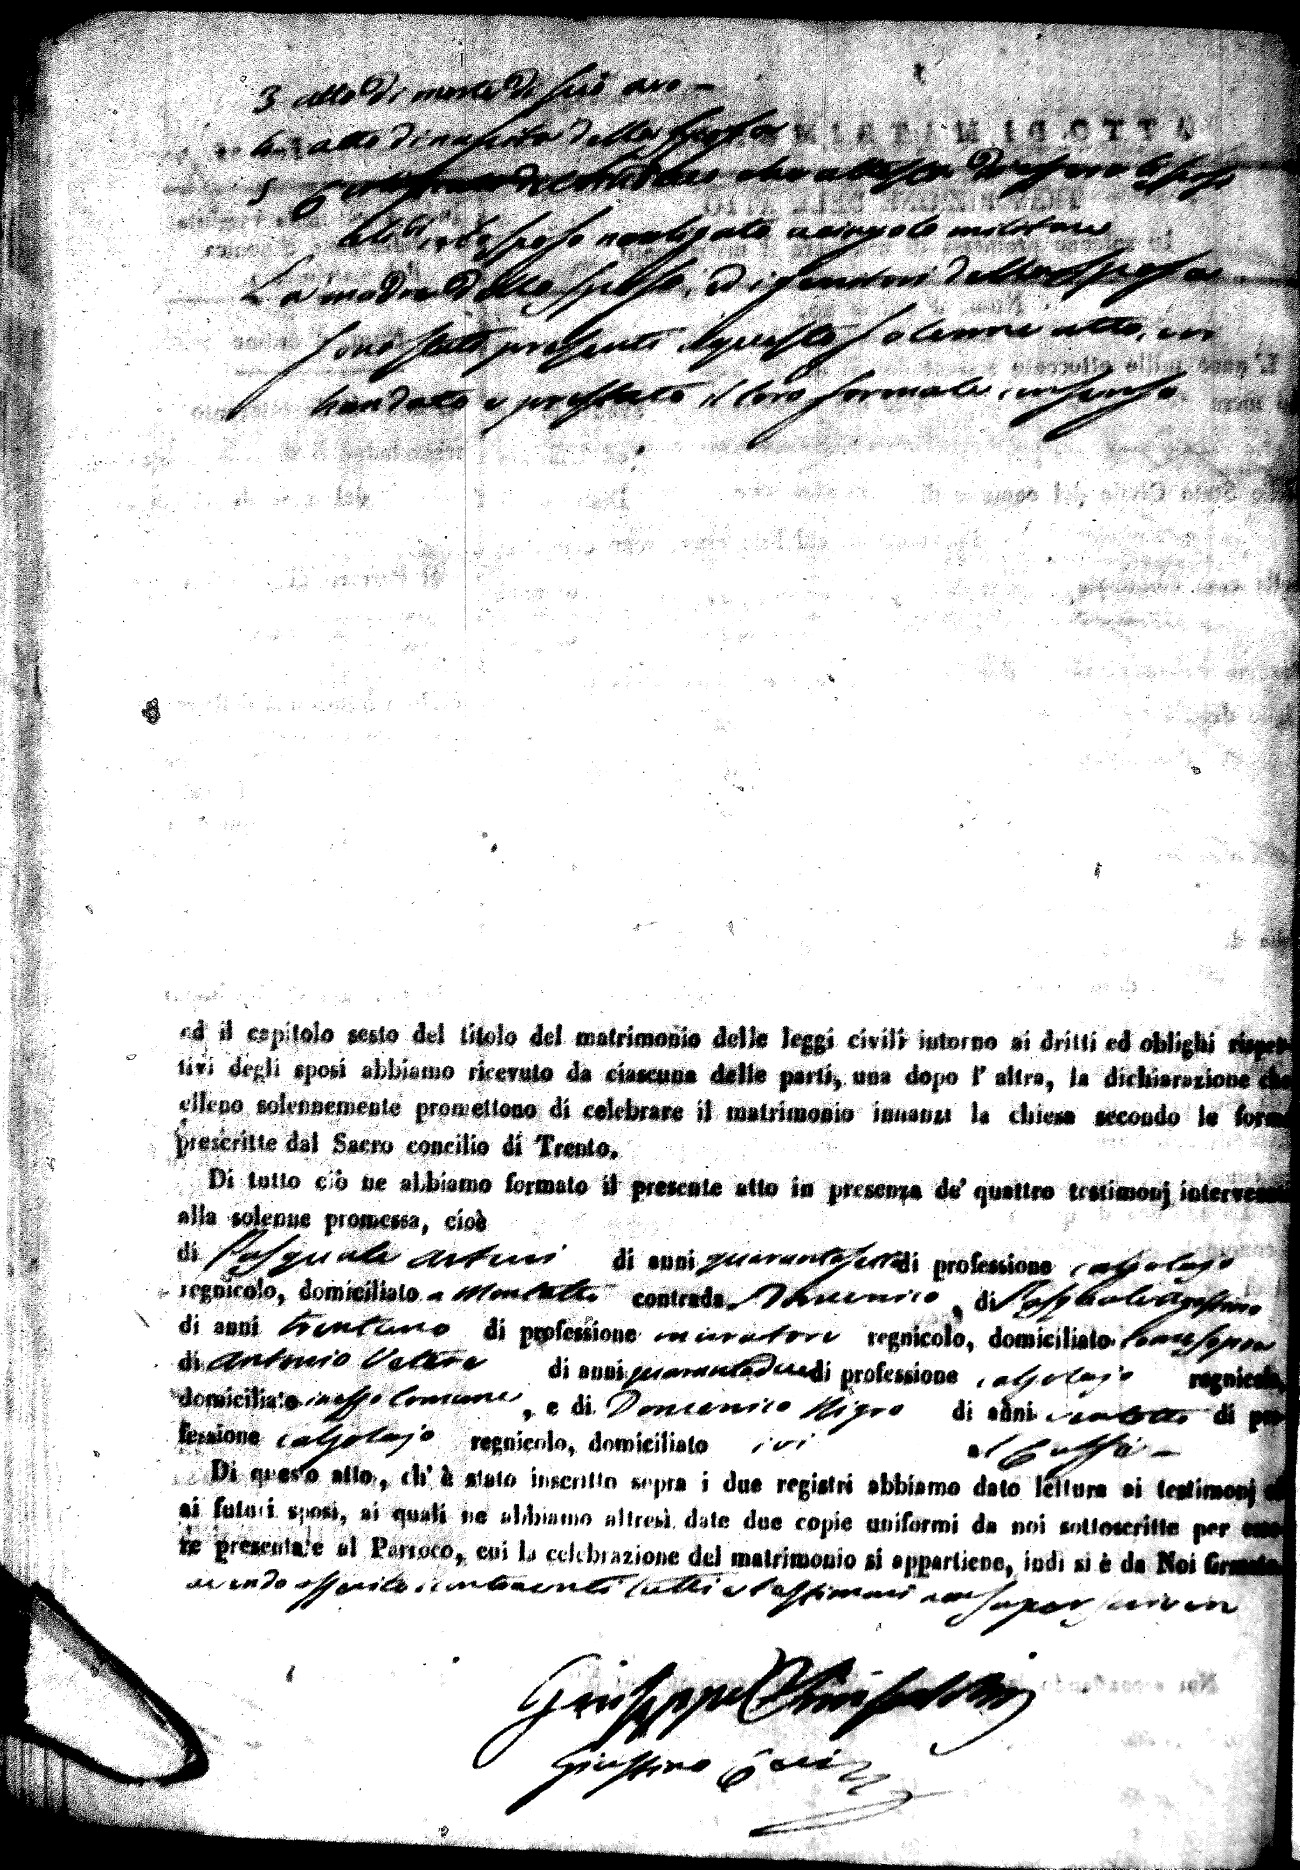 3 atto di morte di suo avo -
4 atto di nascita della sposa
5 Certificato del Sindaco che attesta di essere li sposi
celibi, e lo sposo non ligato a cingolo militare
La madre dello sposo, ed i genitori della sposa
sono stati presenti a questo solenne atto, ed
han dato e prestato il loro formale consenso
ed il capitolo sesto del titolo del matrimonio delle leggi civili intorno ai dritti ed oblighi rispet-
tivi degli sposi abbiamo ricevuto da ciascuna delle parti, una dopo l'altra, la dichiarazione che
elleno solennemente promettono di celebrare il matrimonio innanzi la chiesa secondo le forme
prescritte dal Sacro concilio di Trento.
Di tutto ciò ne abbiamo formato il presente atto in presenza de' quattro testimonj intervenuti
alla solenne promessa, cioè
di Pasquale Arturi di anni quarantasette di professione calzolajo
regnicolo, domiciliato a Montalto contrada, di Pasquale
di anni trentuno di professione muratore regnicolo, domiciliato come sopra
di Antonio Vetere di anni quarantadue di professione calzolajo regnicolo,
domiciliato in esso Comune, e di Domenico Nigro di anni ventotto di pro-
fessione calzolajo regnicolo, domiciliato ivi
Di quest'o atto, ch' è stato inscritto sopra i due registri abbiamo dato lettura ai testimonj ed
ai futuri sposi, ai quali ne abbiamo altresì date due copie uniformi da noi sottoscritte per esse-
re presentate al Parroco, cui la celebrazione del matrimonio si appartiene, indi si è da Noi firmato
avendo asserito i contraenti tutti e testimoni non saper scrivere
Giuseppe